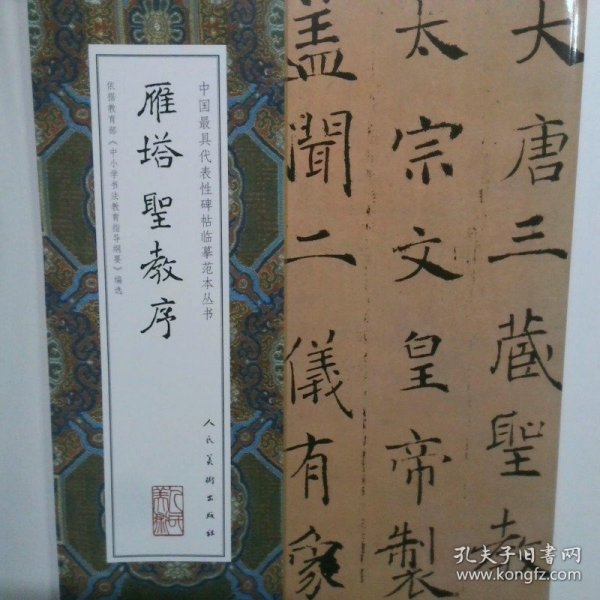 中国最具代表性碑帖临摹范本丛书
雁塔聖教序
依据教育部《中小学书法教育指导纲要》编选
人民美术出版社
人民美术
大唐三藏聖教
太宗文皇帝製
蓋聞二儀有象
孔夫子旧书网
www.kongfz.com